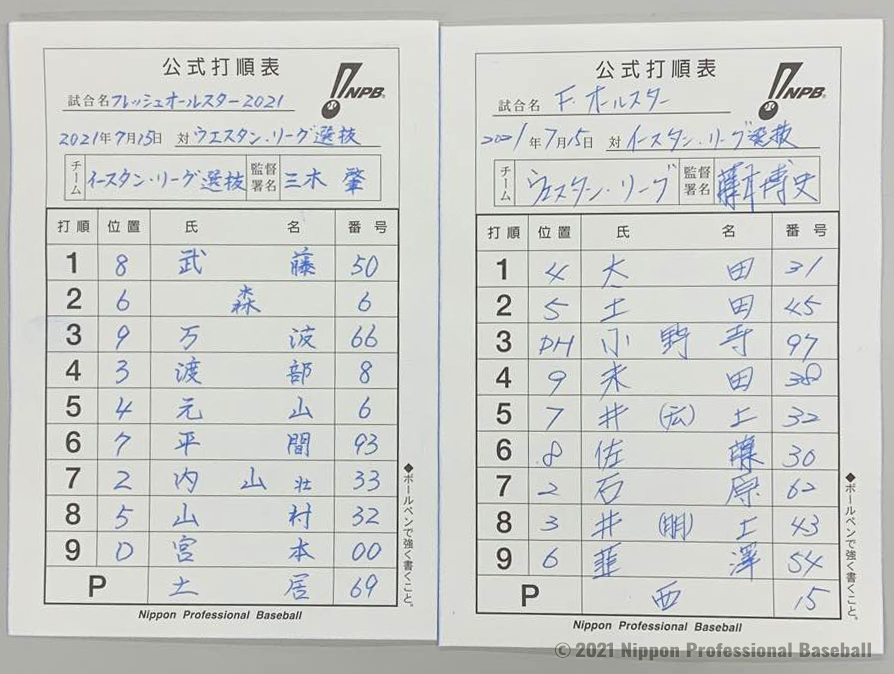 公式打順表
NPB
試合名 フレッシュオールスター2021
2021年7月15日 対 ウエスタン・リーグ選抜
チーム イースタン・リーグ選抜 監督署名 三木 肇
打順 位置 氏名 番号
1 8 武藤 50
2 6 森 6
3 9 万波 66
4 3 渡部 8
5 4 元山 6
6 7 平間 93
7 2 内山壮 33
8 5 山村 32
9 D 宮本 00
P 土居 69
◆ボールペンで強く書くこと。
Nippon Professional Baseball
公式打順表
NPB
試合名 F・オールスター
2021年7月15日 対 イースタン・リーグ選抜
チーム ウエスタン・リーグ 監督署名 藤本博史
打順 位置 氏名 番号
1 4 太田 31
2 5 土田 45
3 DH 小野寺 97
4 9 来田 38
5 7 井(広)上 32
6 8 佐藤 30
7 2 石原 62
8 3 井(朋)上 43
9 6 韮澤 54
P 西 15
◆ボールペンで強く書くこと。
Nippon Professional Baseball
© 2021 Nippon Professional Baseball